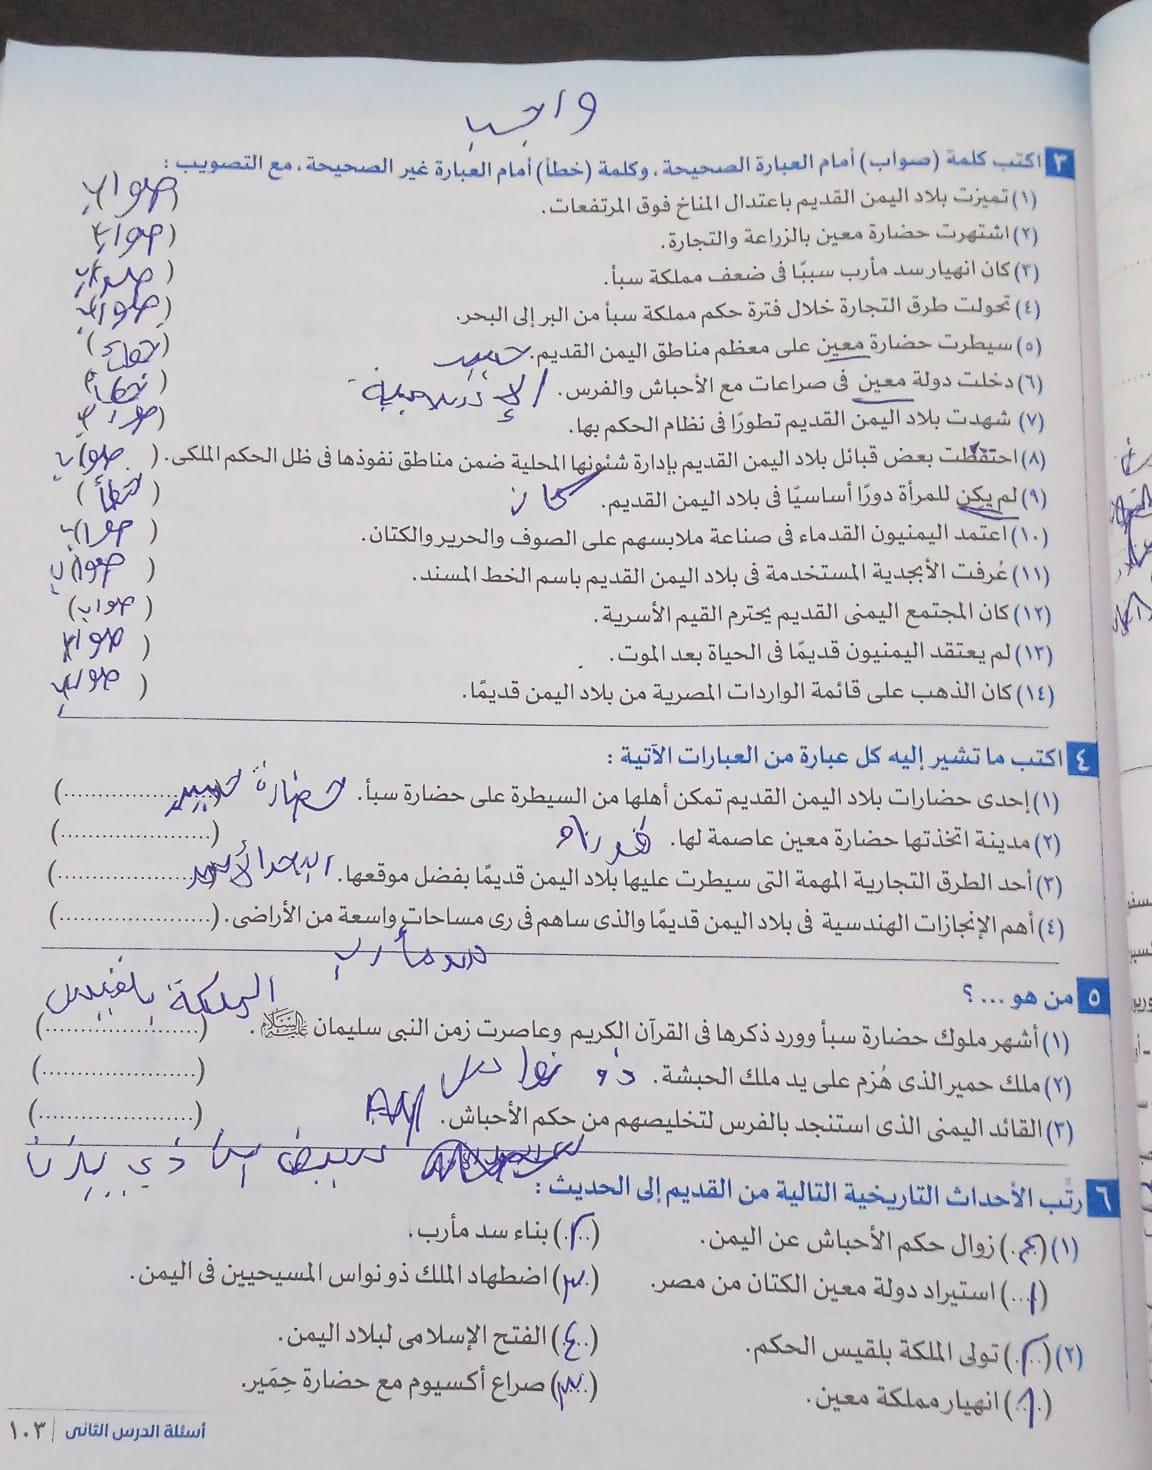 واجب
٣ اكتب كلمة (صواب) أمام العبارة الصحيحة، وكلمة (خطأ) أمام العبارة غير الصحيحة، مع التصويب :
(١) تميزت بلاد اليمن القديم باعتدال المناخ فوق المرتفعات. (صواب)
(٢) اشتهرت حضارة معين بالزراعة والتجارة. (صواب)
(٣) كان انهيار سد مأرب سببًا فى ضعف مملكة سبأ. (صواب)
(٤) تحولت طرق التجارة خلال فترة حكم مملكة سبأ من البر إلى البحر. (صواب)
(٥) سيطرت حضارة معين على معظم مناطق اليمن القديم. حمير (خطأ)
(٦) دخلت دولة معين فى صراعات مع الأحباش والفرس. (خطأ)
(٧) شهدت بلاد اليمن القديم تطورًا فى نظام الحكم بها. (صواب)
(٨) احتفظت بعض قبائل بلاد اليمن القديم بإدارة شئونها المحلية ضمن مناطق نفوذها فى ظل الحكم الملكى. (صواب)
(٩) لم يكن للمرأة دورًا أساسيًا فى بلاد اليمن القديم. كان (خطأ)
(١٠) اعتمد اليمنيون القدماء فى صناعة ملابسهم على الصوف والحرير والكتان. (صواب)
(١١) عُرفت الأبجدية المستخدمة فى بلاد اليمن القديم باسم الخط المسند. (صواب)
(١٢) كان المجتمع اليمنى القديم يحترم القيم الأسرية. (صواب)
(١٣) لم يعتقد اليمنيون قديمًا فى الحياة بعد الموت. (صواب)
(١٤) كان الذهب على قائمة الواردات المصرية من بلاد اليمن قديمًا. (صواب)
٤ اكتب ما تشير إليه كل عبارة من العبارات الآتية :
(١) إحدى حضارات بلاد اليمن القديم تمكن أهلها من السيطرة على حضارة سبأ. حضارة حمير (....................)
(٢) مدينة اتخذتها حضارة معين عاصمة لها. قرناو (....................)
(٣) أحد الطرق التجارية المهمة التى سيطرت عليها بلاد اليمن قديمًا بفضل موقعها. البحر الأحمر (....................)
(٤) أهم الإنجازات الهندسية فى بلاد اليمن قديمًا والذى ساهم فى رى مساحات واسعة من الأراضى. (....................)
سد مأرب
٥ من هو ... ؟
الملكة بلقيس
(١) أشهر ملوك حضارة سبأ وورد ذكرها فى القرآن الكريم وعاصرت زمن النبى سليمان عليه السلام. (....................)
(٢) ملك حمير الذى هُزم على يد ملك الحبشة. ذو نواس (....................)
(٣) القائد اليمنى الذى استنجد بالفرس لتخليصهم من حكم الأحباش. (....................)
سيف ابن ذي يزن
٦ رتِّب الأحداث التاريخية التالية من القديم إلى الحديث :
(١) (٤) زوال حكم الأحباش عن اليمن. (٢) بناء سد مأرب.
(١) استيراد دولة معين الكتان من مصر. (٣) اضطهاد الملك ذو نواس المسيحيين فى اليمن.
(٢) (٢) تولى الملكة بلقيس الحكم. (٤) الفتح الإسلامى لبلاد اليمن.
(١) انهيار مملكة معين. (٣) صراع أكسيوم مع حضارة حِمَير.
أسئلة الدرس الثانى | ١٠٣